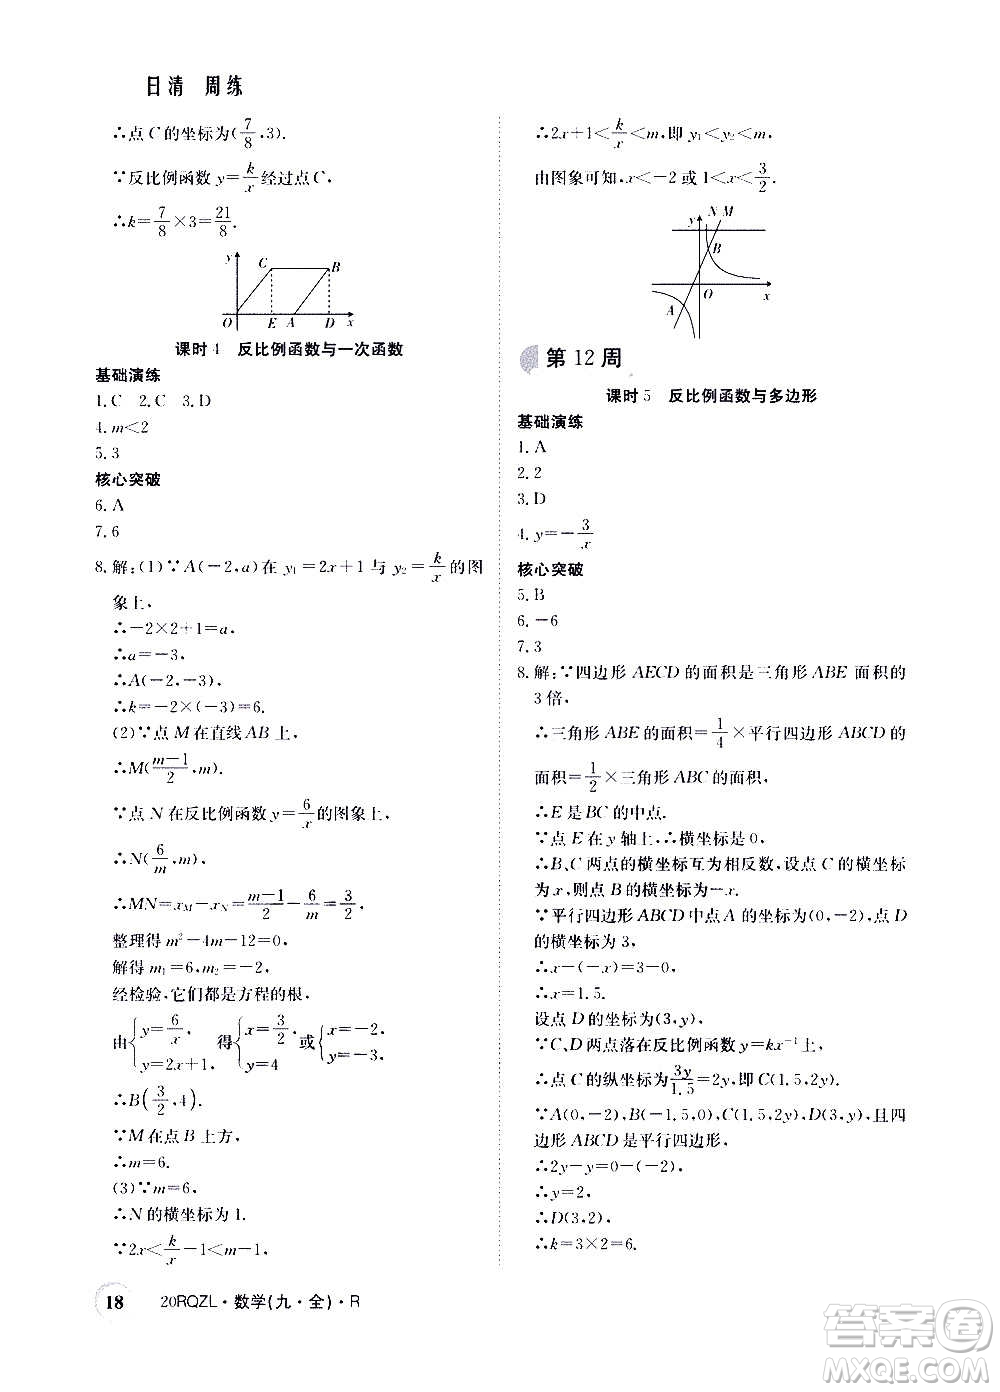 日清 周练
∴点C的坐标为(7/8,3).
∵反比例函数y=k/x经过点C,
∴k=7/8×3=21/8.
y C B
O E A D x
课时4 反比例函数与一次函数
基础演练
1.C 2.C 3.D
4.m<2
5.3
核心突破
6.A
7.6
8.解:(1)∵A(-2,a)在y₁=2x+1与y₂=k/x的图
象上,
∴-2×2+1=a,
∴a=-3,
∴A(-2,-3),
∴k=-2×(-3)=6.
(2)∵点M在直线AB上,
∴M((m-1)/2,m).
∵点N在反比例函数y=6/x的图象上,
∴N(6/m,m),
∴MN=x_M-x_N=(m-1)/2-6/m=3/2,
整理得m²-4m-12=0,
解得m₁=6,m₂=-2,
经检验,它们都是方程的根,
由{y=6/x, y=2x+1, 得{x=3/2, y=4 或{x=-2, y=-3,
∴B(3/2,4).
∵M在点B上方,
∴m=6.
(3)∵m=6,
∴N的横坐标为1.
∵2x<k/x-1<m-1,
∴2x+1<k/x<m,即y₁<y₂<m,
由图象可知,x<-2或1<x<3/2.
y N M
B
O x
A
第12周
课时5 反比例函数与多边形
基础演练
1.A
2.2
3.D
4.y=-3/x
核心突破
5.B
6.-6
7.3
8.解:∵四边形AECD的面积是三角形ABE面积的
3倍,
∴三角形ABE的面积=1/4×平行四边形ABCD的
面积=1/2×三角形ABC的面积,
∴E是BC的中点.
∵点E在y轴上,∴横坐标是0,
∴B、C两点的横坐标互为相反数,设点C的横坐标
为x,则点B的横坐标为-x.
∵平行四边形ABCD中点A的坐标为(0,-2),点D
的横坐标为3,
∴x-(-x)=3-0,
∴x=1.5.
设点D的坐标为(3,y),
∵C、D两点落在反比例函数y=kx⁻¹上,
∴点C的纵坐标为3y/1.5=2y,即C(1.5,2y),
∵A(0,-2),B(-1.5,0),C(1.5,2y),D(3,y),且四
边形ABCD是平行四边形,
∴2y-y=0-(-2),
∴y=2,
∴D(3,2),
∴k=3×2=6.
18 20RQZL·数学(九·全)·R
答案圈
MXQE.COM